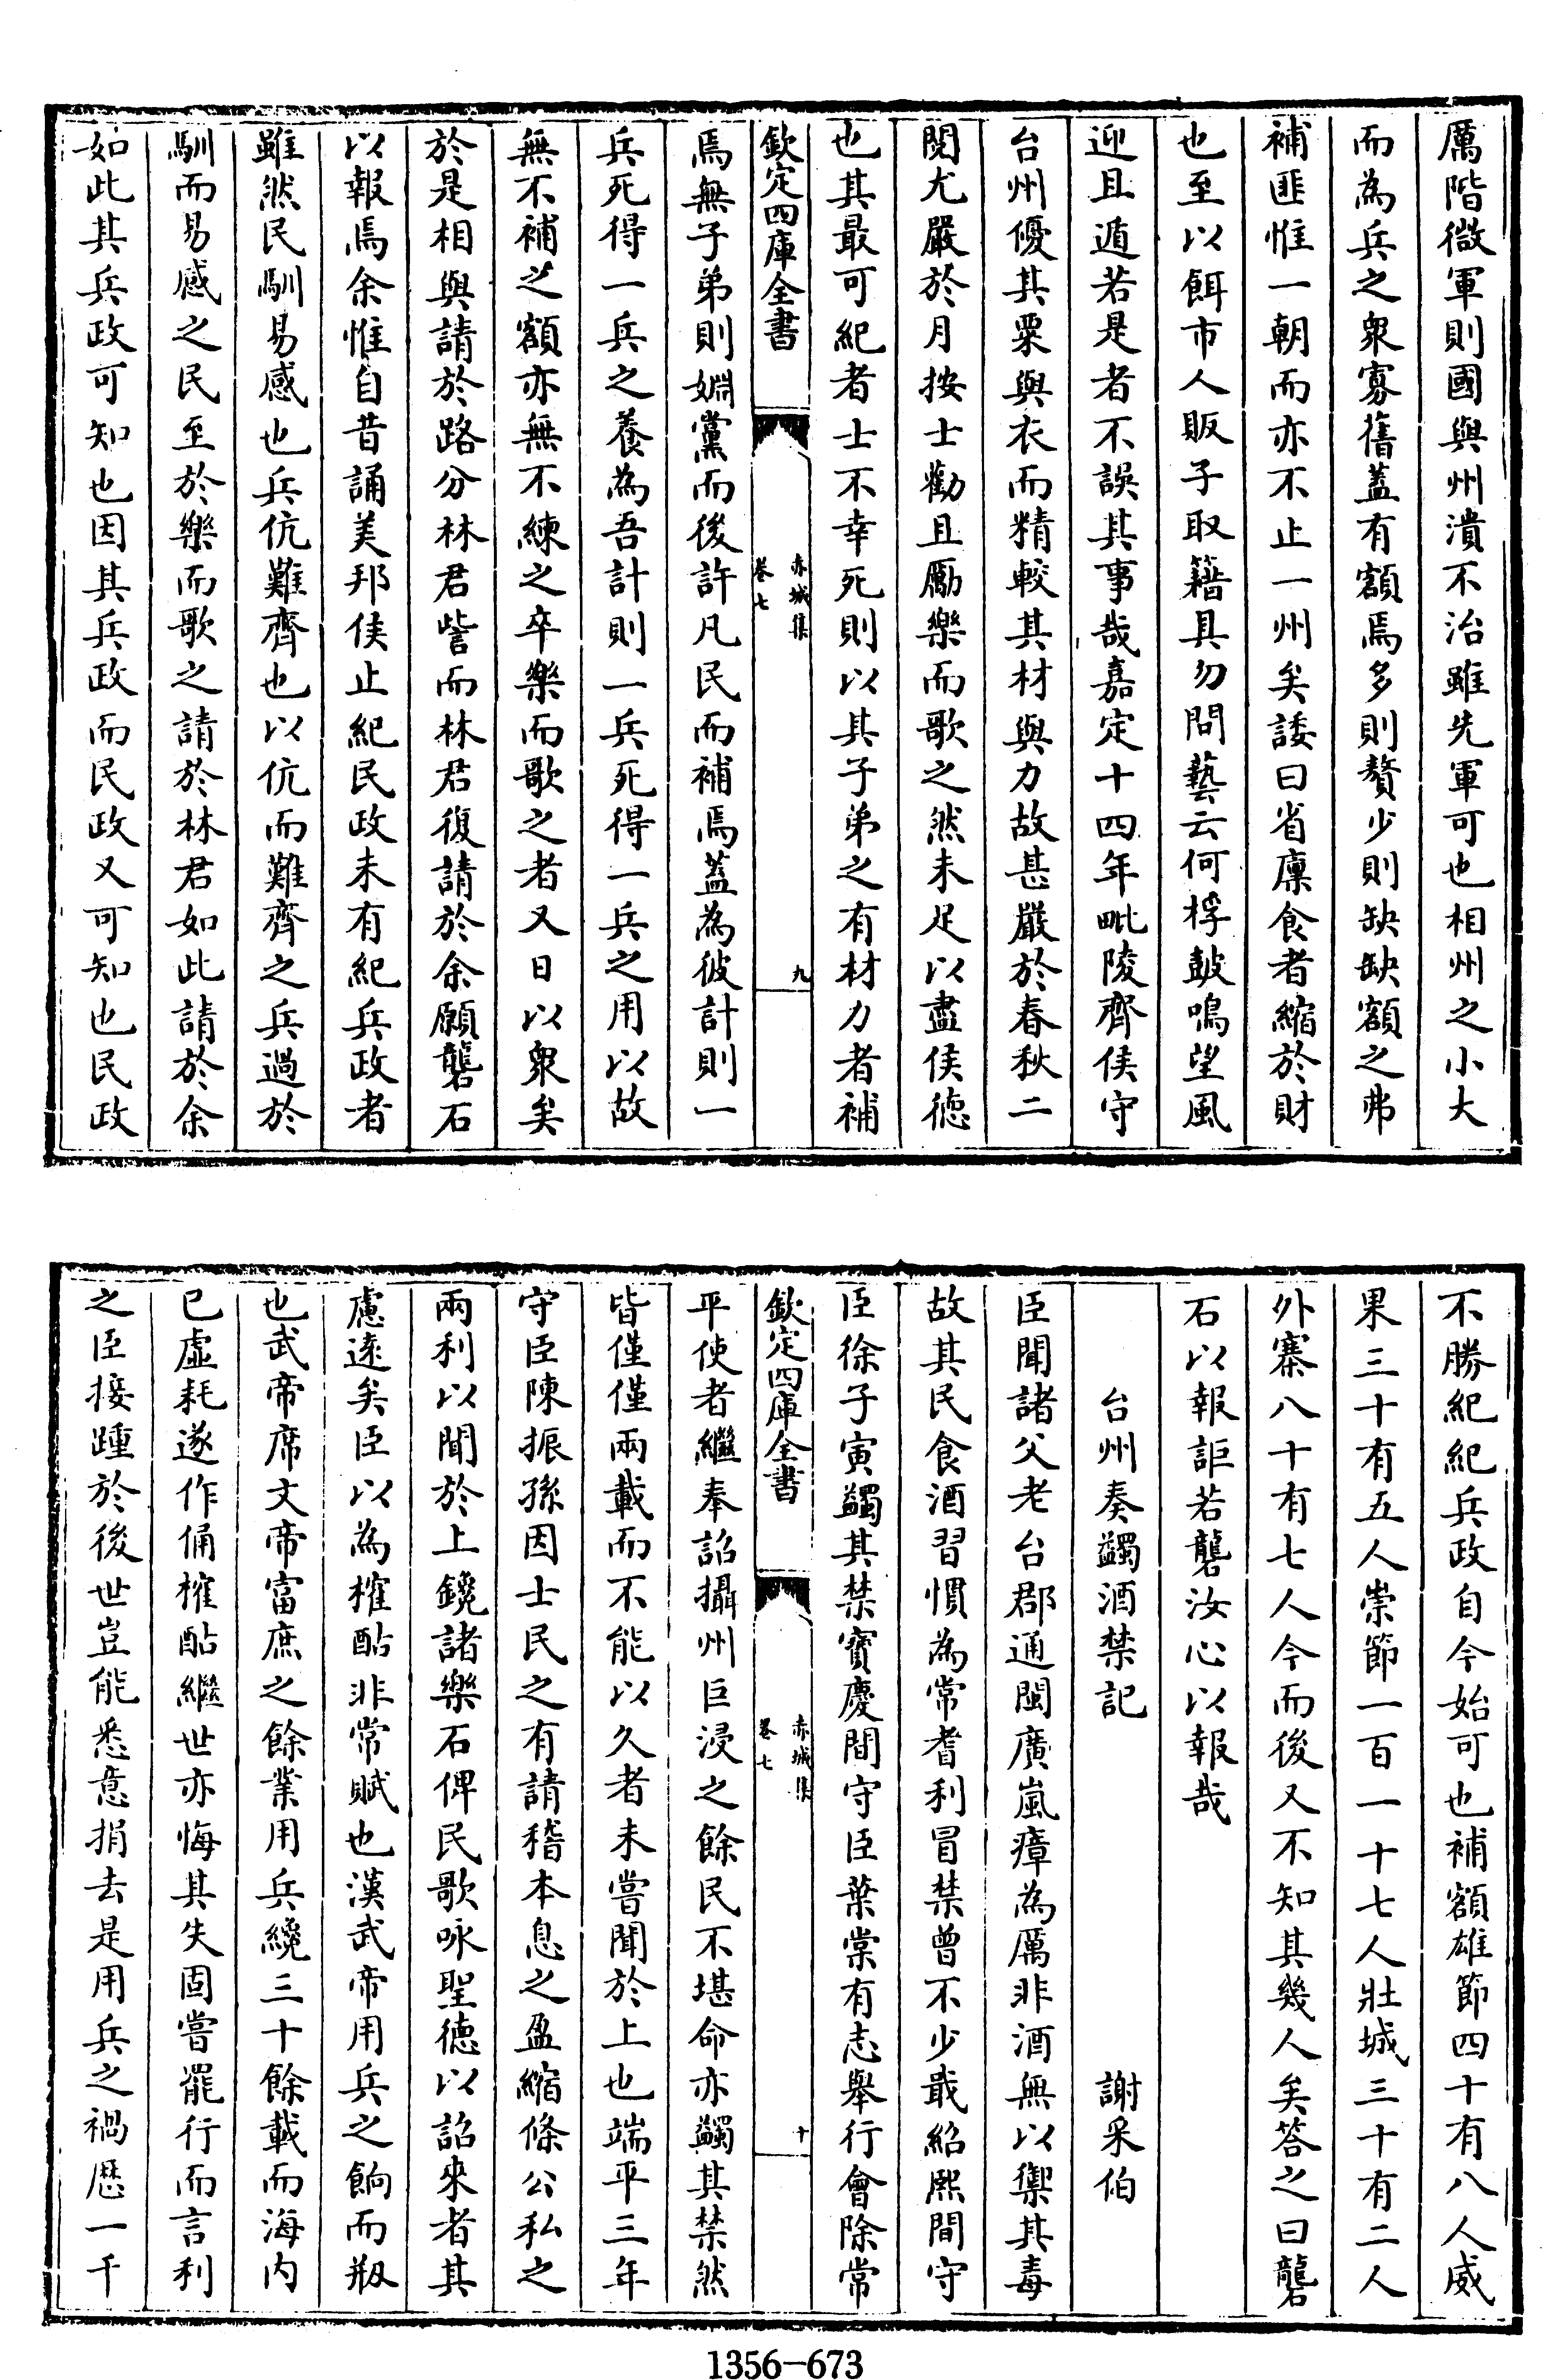 厲階微軍則國與州潰不治雖先軍可也相州之小大
而為兵之衆寡舊蓋有額焉多則贅少則缺缺額之弗
補匪惟一朝而亦不止一州矣諉曰省廩食者縮於財
也至以餌市人販子取籍具勿問藝云何桴鼓鳴望風
迎且遁若是者不誤其事哉嘉定十四年毗陵齊侯守
台州優其粟與衣而精較其材與力故甚嚴於春秋二
閱尤嚴於月按士勸且勵樂而歌之然未足以盡侯德
也其最可紀者士不幸死則以其子弟之有材力者補
欽定四庫全書
赤城集
卷七
九
焉無子弟則婣黨而後許凡民而補焉蓋為彼計則一
兵死得一兵之養為吾計則一兵死得一兵之用以故
無不補之額亦無不練之卒樂而歌之者又日以衆矣
於是相與請於路分林君訾而林君復請於余願礱石
以報焉余惟自昔誦美邦侯止紀民政未有紀兵政者
雖然民馴易感也兵伉難齊也以伉而難齊之兵過於
馴而易感之民至於樂而歌之請於林君如此請於余
如此其兵政可知也因其兵政而民政又可知也民政
不勝紀紀兵政自今始可也補額雄節四十有八人威
果三十有五人崇節一百一十七人壯城三十有二人
外寨八十有七人今而後又不知其幾人矣答之曰礱
石以報詎若礱汝心以報哉
台州奏蠲酒禁記 謝采伯
臣聞諸父老台郡通閩廣嵐瘴為厲非酒無以禦其毒
故其民食酒習慣為常耆利冒禁曾不少戢紹熙間守
臣徐子寅蠲其禁寶慶間守臣葉棠有志舉行會除常
欽定四庫全書
赤城集
卷七
十
平使者繼奉詔攝州巨浸之餘民不堪命亦蠲其禁然
皆僅僅兩載而不能以久者未嘗聞於上也端平三年
守臣陳振孫因士民之有請稽本息之盈縮條公私之
兩利以聞於上鑱諸樂石俾民歌咏聖德以詔來者其
慮遠矣臣以為榷酤非常賦也漢武帝用兵之餉而剏
也武帝席文帝富庶之餘業用兵纔三十餘載而海内
已虛耗遂作俑榷酤繼世亦悔其失固嘗罷行而言利
之臣接踵於後世豈能悉意捐去是用兵之禍厯一千
1356-673